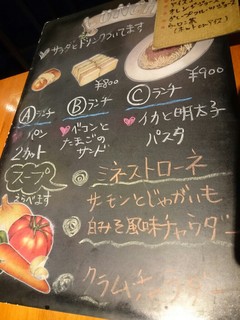 サラダとドリンクついてます
¥800
¥900
Aランチ
パン
2カット
Bランチ
ベーコンと
たまごの
サンド
Cランチ
イカと明太子
パスタ
スープ
えらべます
ミネストローネ
サーモンとじゃがいも
白みそ風味チャウダー
クラムチャウダー